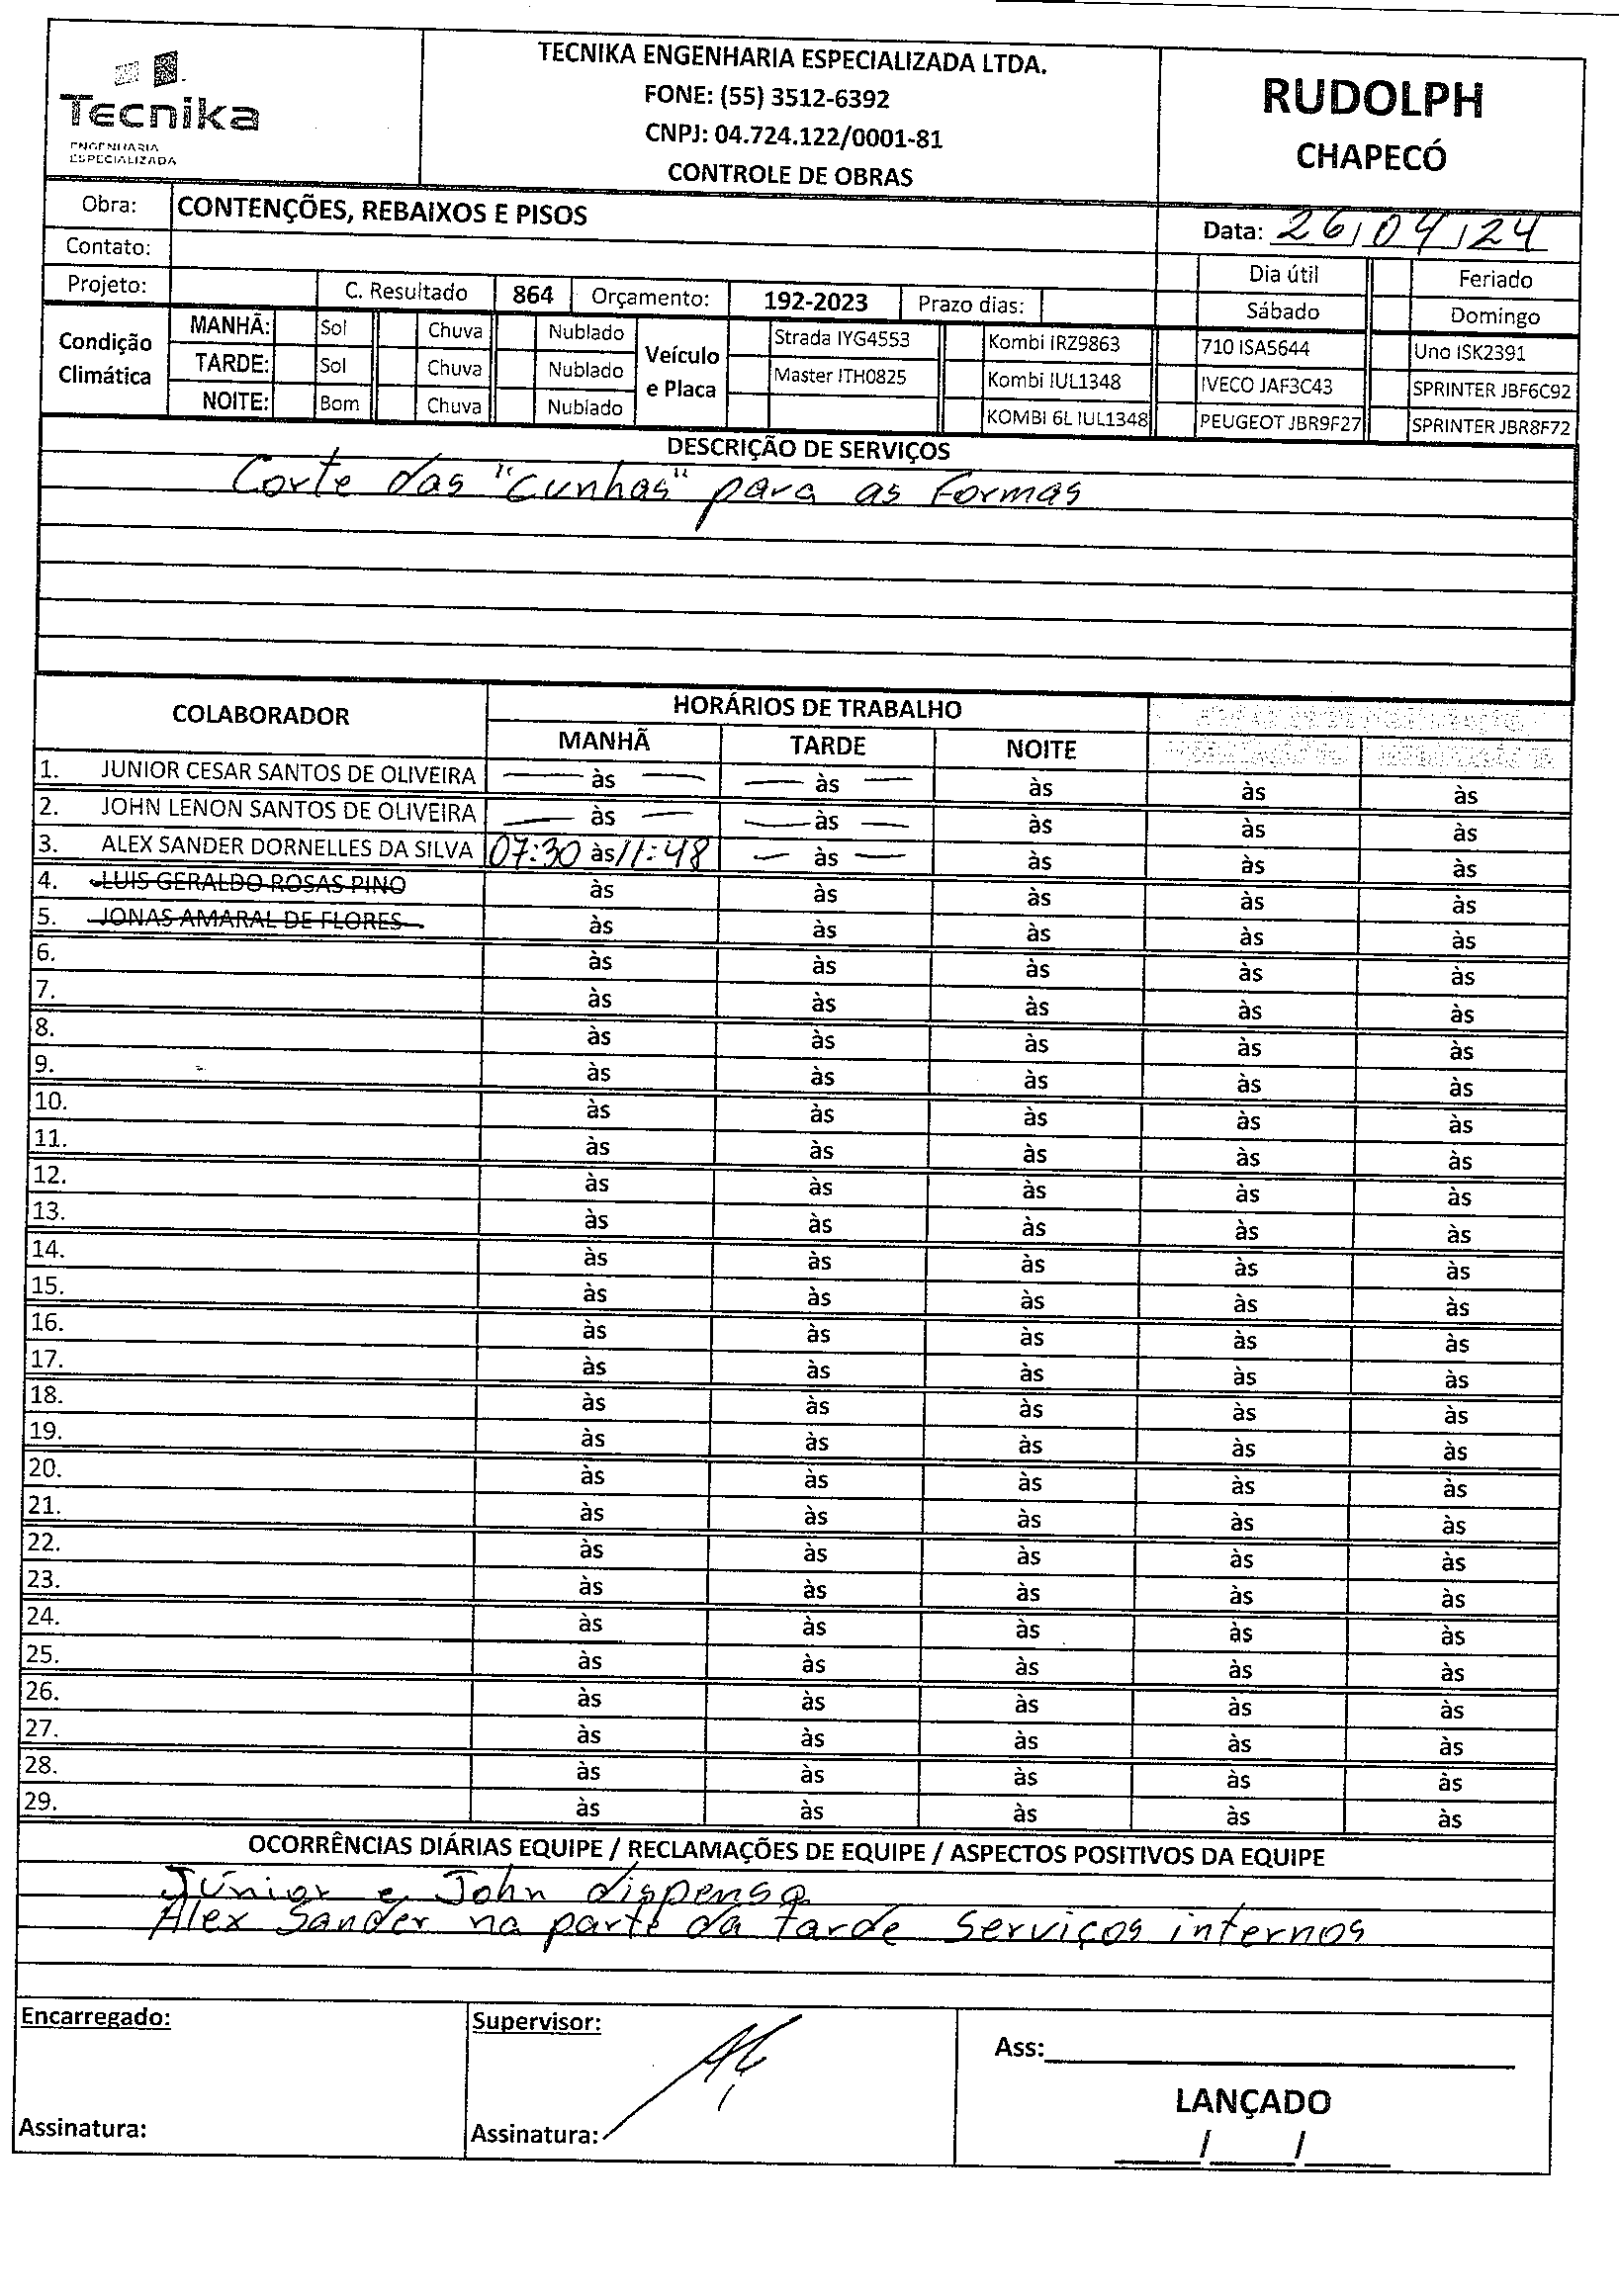 Tecnika
ENGENHARIA
ESPECIALIZADA
TECNIKA ENGENHARIA ESPECIALIZADA LTDA.
FONE: (55) 3512-6392
CNPJ: 04.724.122/0001-81
CONTROLE DE OBRAS
RUDOLPH
CHAPECÓ
Obra: CONTENÇÕES, REBAIXOS E PISOS
Data: 26/04/24
Contato:
Dia útil Feriado
Projeto: C. Resultado 864 Orçamento: 192-2023 Prazo dias: Sábado Domingo
Condição Climática
MANHÃ: Sol Chuva Nublado
TARDE: Sol Chuva Nublado
NOITE: Bom Chuva Nublado
Veículo e Placa
Strada IYG4553 Kombi IRZ9863 710 ISA5644 Uno ISK2391
Master ITH0825 Kombi IUL1348 IVECO JAF3C43 SPRINTER JBF6C92
KOMBI 6L IUL1348 PEUGEOT JBR9F27 SPRINTER JBR8F72
DESCRIÇÃO DE SERVIÇOS
Corte das "Cunhas" para as Formas
COLABORADOR HORÁRIOS DE TRABALHO
MANHÃ TARDE NOITE
1. JUNIOR CESAR SANTOS DE OLIVEIRA — às — — às — às às às
2. JOHN LENON SANTOS DE OLIVEIRA — às — — às — às às às
3. ALEX SANDER DORNELLES DA SILVA 07:30 às 11:48 — às — às às às
4. LUIS GERALDO ROSAS PINO às às às às às
5. JONAS AMARAL DE FLORES às às às às às
6. às às às às às
7. às às às às às
8. às às às às às
9. às às às às às
10. às às às às às
11. às às às às às
12. às às às às às
13. às às às às às
14. às às às às às
15. às às às às às
16. às às às às às
17. às às às às às
18. às às às às às
19. às às às às às
20. às às às às às
21. às às às às às
22. às às às às às
23. às às às às às
24. às às às às às
25. às às às às às
26. às às às às às
27. às às às às às
28. às às às às às
29. às às às às às
OCORRÊNCIAS DIÁRIAS EQUIPE / RECLAMAÇÕES DE EQUIPE / ASPECTOS POSITIVOS DA EQUIPE
Júnior e John dispensa
Alex Sander na parte da tarde serviços internos
Encarregado:
Supervisor:
Ass:
LANÇADO
Assinatura:
Assinatura:
/ /